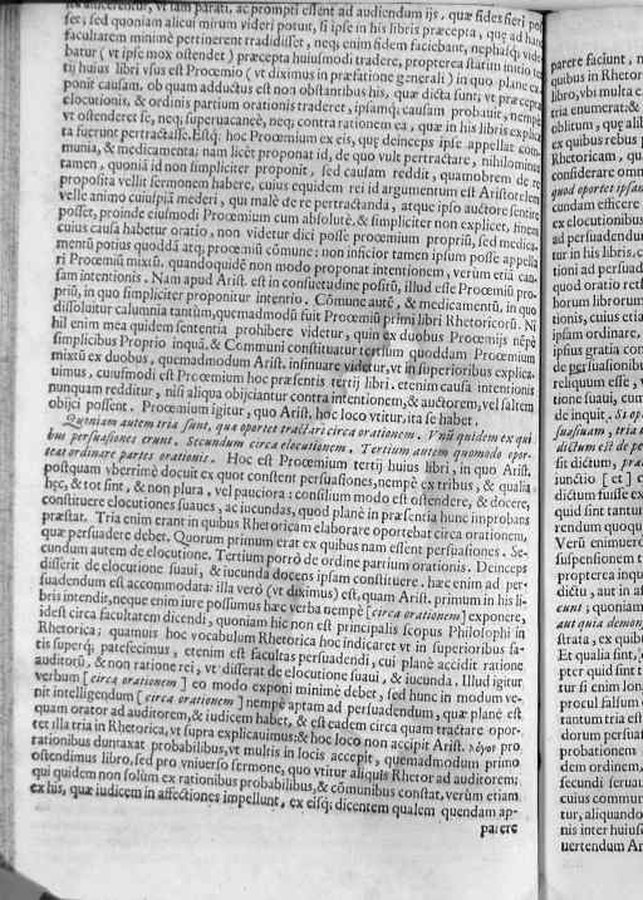 ut vt iam parati, ac prompti essent ad audiendum ijs, quæ fides fieri
set, sed quoniam alicui mirum videri potuit, si ipse in his libris præcepta, quę ad hanc
facultatem minimè pertinerent tradidisset, neq; enim fidem faciebant, nephasq; vide
batur (vt ipse mox ostendet) præcepta huiusmodi tradere, propterea statim initio ter
tij huius libri vsus est Procemio (vt diximus in præfatione generali) in quo planè ex
ponit causam, ob quam adductus est non obstantibus his, quæ dicta sunt; vt præcepta
elocutionis, & ordinis partium orationis traderet, ipsamq; causam probauit, nempè
vt ostenderet se, neq; superuacaneè, neq; contra rationem ea, quæ in his libris explica
ta fuerunt pertractasse. Estq; hoc Procemium ex eis, quę deinceps ipse appellat com
munia, & medicamenta: nam licèt proponat id, de quo vult pertractare, nihilominus
tamen, quoniã id non simpliciter proponit, sed causam reddit, quamobrem de re
proposita vellit sermonem habere, cuius equidem rei id argumentum est Aristotelem
velle animo cuiuspiã mederi, qui malè de re pertractanda, atque ipso auctore sentire
posset, proinde eiusmodi Procemium cum absolutè, & simpliciter non explicet, finem
cuius causa habetur oratio, non videtur dici posse procemium propriũ, sed medica-
mentũ potius quoddã atq; procemiũ cõmune: non inficior tamen ipsum posse appella
ri Procemiũ mixtũ, quandoquidẽ non modo proponat intentionem, verùm etiã cau
sam intentionis. Nam apud Arist. est in consuetudine positũ, illud esse Procemiũ pro-
priũ, in quo simpliciter proponitur intentio. Cõmune autẽ, & medicamentũ, in quo
dissoluitur calumnia tantùm, quemadmodũ fuit Procemiũ primi libri Rhetoricorũ. Ni
hil enim mea quidem sententia prohibere videtur, quin ex duobus Procemijs nẽpè
simplicibus Proprio inquã. & Communi constituatur tertium quoddam Procemium
mixtũ ex duobus, quemadmodum Arist. insinuare videtur, vt in superioribus explica
uimus, cuiusmodi est Procemium hoc præsentis tertij libri. etenim causa intentionis
nunquam redditur, nisi aliqua obijciantur contra intentionem, & auctorem, vel saltem
obijci possent. Procemium igitur, quo Arist. hoc loco vtitur, ita se habet.
Quoniam autem tria sunt, quæ oportet tractari circa orationem. Vnũ quidem ex qui
bus persuasiones erunt. Secundum circa elocutionem. Tertium autem quomodo opor-
teat ordinare partes orationis. Hoc est Procemium tertij huius libri, in quo Arist.
postquam vberrimè docuit ex quot constent persuasiones, nempè ex tribus, & qualia
hęc, & tot sint, & non plura, vel pauciora: consilium modo est ostendere, & docere,
constituere elocutiones suaues, ac iucundas, quod planè in præsentia hunc improbans
præstat. Tria enim erant in quibus Rhetoricam elaborare oportebat circa orationem,
quæ persuadere debet. Quorum primum erat ex quibus nam essent persuasiones. Se-
cundum autem de elocutione. Tertium porrò de ordine partium orationis. Deinceps
disserit de elocutione suaui, & iucunda docens ipsam constituere. hæc enim ad per-
suadendum est accommodata: illa verò (vt diximus) est, quam Arist. primum in his li-
bris intendit, neque enim iure possumus hæc verba nempè [circa orationem] exponere,
idest circa facultatem dicendi, quoniam hic non est principalis scopus Philosophi in
Rhetorica; quamuis hoc vocabulum Rhetorica hoc indicaret vt in superioribus sa-
tis superq; patefecimus, etenim est facultas persuadendi, cui planè accidit ratione
auditorũ, & non ratione rei, vt disserat de elocutione suaui, & iucunda. Illud igitur
verbum [circa orationem] eo modo exponi minimè debet, sed hunc in modum ve-
nit intelligendum [circa orationem] nempè aptam ad persuadendum, quæ planè est
quam orator ad auditorem, & iudicem habet, & est eadem circa quam tractare opor-
tet illa tria in Rhetorica, vt supra explicauimus; & hoc loco non accipit Arist. λόγος pro
rationibus duntaxat probabilibus, vt multis in locis accepit, quemadmodum primo
ostendimus libro, sed pro vniuerso sermone, quo vtitur aliquis Rhetor ad auditorem;
qui quidem non solùm ex rationibus probabilibus, & cõmunibus constat, verùm etiam
ex his, quæ iudicem in affectiones impellunt, ex eisq; dicentem qualem quendam ap-
parere
parere faciunt,
quibus in Rhetor
libro, vbi multa
tria enumerat: &
oblitum, quę alib
ex quibus rebus
Rhetoricam, qu
considerare omn
quod oportet ipsam
cundam efficere
ex elocutionibus
ad persuadendum
tur in his libris,
tioni ad persuad
quod oratio ret
horum librorum
tionis, cuius etia
ipsam ordinare,
ipsius gratia con
de persuasionibu
reliquum esse,
tione suaui, cum
de inquit. Si op
suasiam, tria
dictum est de pe
sit dictum, præ
iunctio [et]
dictum fuisse ex
quid sint tantu
rendum quoqu
Verũ enimuerò
suspensionem t
propterea inqu
dictu, aut in af
cunt; quoniam
aut quia demon
strata, ex quibu
Et qualia sint,
pter quid sint t
tur si enim lon
procul falsum
tantum tria est
dorum persua
probationem
dem ordinem,
secundi seruau
cuius commun
tur, aliquando
nis inter huius
uertendum Ar